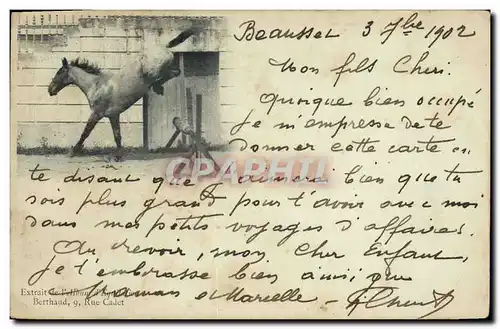 Beausset 3 7bre 1902
Mon fils Cheri.
Quoique bien occupé
je m'empresse de te
donner cette carte en
te disant que j'aimerai bien que tu
sois plus grand pour t'avoir avec moi
dans mes petits voyages d'affaires.
Au revoir, mon cher Enfant,
je t'embrasse bien ainsi que
maman & Marcelle
CPARHIL
Extrait de l'Album
Berthaud, 9, Rue Cadet